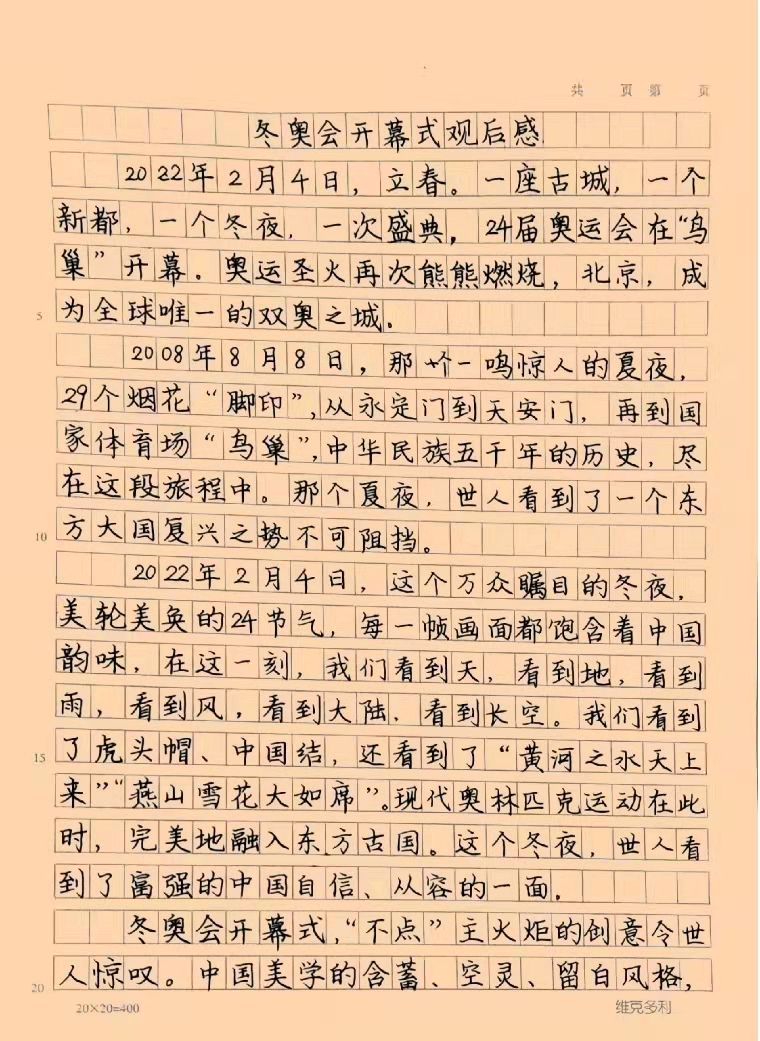 共 页 第 页
冬奥会开幕式观后感
2022年2月4日，立春。一座古城，一个
新都，一个冬夜，一次盛典，24届奥运会在“鸟
巢”开幕。奥运圣火再次熊熊燃烧，北京，成
5 为全球唯一的双奥之城。
2008年8月8日，那个一鸣惊人的夏夜，
29个烟花“脚印”，从永定门到天安门，再到国
家体育场“鸟巢”，中华民族五千年的历史，尽
在这段旅程中。那个夏夜，世人看到了一个东
10 方大国复兴之势不可阻挡。
2022年2月4日，这个万众瞩目的冬夜，
美轮美奂的24节气，每一帧画面都饱含着中国
韵味，在这一刻，我们看到天，看到地，看到
雨，看到风，看到大陆，看到长空。我们看到
15 了虎头帽、中国结，还看到了“黄河之水天上
来”“燕山雪花大如席”。现代奥林匹克运动在此
时，完美地融入东方古国。这个冬夜，世人看
到了富强的中国自信、从容的一面。
冬奥会开幕式，“不点”主火炬的创意令世
20 人惊叹。中国美学的含蓄、空灵、留白风格，
20×20=400 维克多利